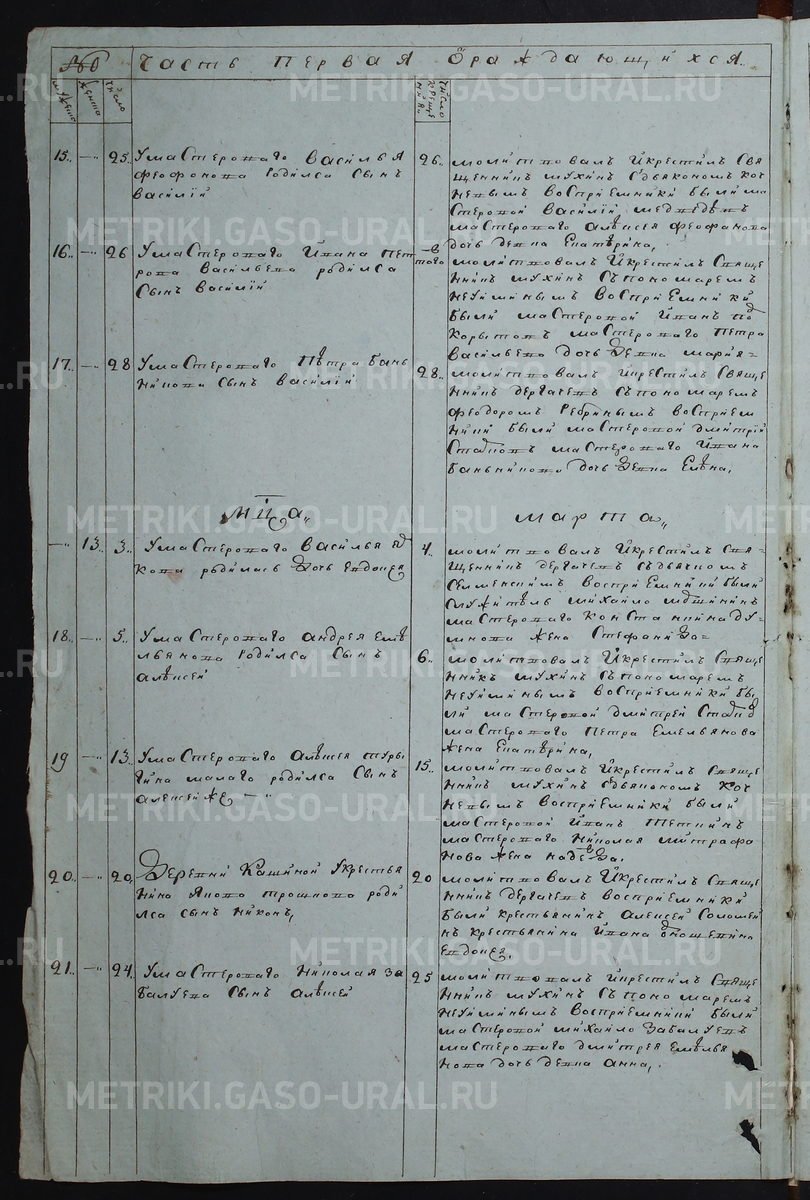 Часть первая ѿ раждающихся
мужеска
женска
число
число крещения
15.. — 25.. У мастероваго Василья
Феофонова родился сынъ
Василий
26.. молитвовалъ и крестилъ свя
щенникъ Мухинъ з дьякономъ Коч
невымъ воспрiемники были ма
стеровой Василiй Медведевъ
мастероваго Алексея Феофанова
дочь девка Екатерина,
16.. — 26 У мастероваго Ивана Пет
рова Васильева родился
сынъ Василiй
— в —
тогожъ
молитвовалъ и крестилъ свяще
нникъ Мухинъ съ пономаремъ
Неуйминымъ воспрiемники
были мастеровой Иванъ По
Корытовъ мастероваго Петра
Васильева дочь девка Мария =
17. — 28 У мастероваго Петра Бань
никова сынъ Василiй
28.. молитвовалъ и крестилъ свяще
нникъ Дергачевъ съ пономаремъ
Феодоромъ Ребринымъ воспрiем
ники были мастеровой Дмитрiй
мастероваго Ивана
Баньникова дочь девка Елена,
Мца,, Марта,,
— 13. 3.. У мастероваго Василья
кова родилась дочь Евдокея
4.. молитвовалъ и крестилъ свя=
щенникъ Дергачевъ съ дьячкомъ
воспрiемники были
служитель Михайло
мастероваго Константина Ду
жена Стефанида =
18. — 5. У мастероваго Андрея Еме
льянова родился сынъ
Алексей
6.. молитвовалъ и крестилъ свяще
нникъ Мухинъ съ пономаремъ
Неуйминымъ воспрiемники бы
ли мастеровой Дмитрей
мастероваго Петра Емельянова
жена Екатерина,
19 — 13. У мастероваго Алексея Туры
гина малаго родился сынъ
Алексей же —"
15.. молитвовалъ и крестилъ свяще
нникъ Мухинъ з дьякономъ Коч
невымъ воспрiемники были
мастеровой Иванъ Тетнинъ
мастероваго Николая Митрофа
нова жена Надежда.
20.. — 20, Деревни Кашиной у крестья
нина Якова Трошкова роди
лся сынъ Никонъ,
20 молитвовалъ и крестилъ свяще
нникъ Дергачевъ воспрiемники
были крестьянинъ Алексей Соломеи
нъ крестьянина Ивана Онощенина
Евдокея,
21. — 24. У мастероваго Николая За
балуева сынъ Алексей
25 молитвовалъ и крестилъ свяще
нникъ Мухинъ съ пономаремъ
Неуйминымъ воспрiемники были
мастеровой Михайло Забалуевъ
мастероваго Дмитрея Емелья
нова дочь девка Анна,.
METRIKI.GASO-URAL.RU